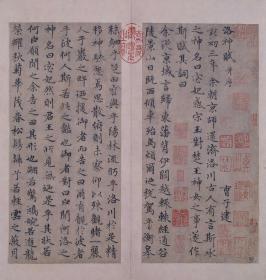 洛神賦 并序
曹子建
黃初三年余朝京師還濟洛川古人有言斯水
之神名曰宓妃感宋玉對楚王神女之事遂作
斯賦其詞曰
余從京域言歸東藩背伊闕越轘轅經通谷
陵景山日既西傾車殆馬煩爾迺稅駕乎蘅皋
秣駟乎芝田容與乎楊林流眄乎洛川於是精
移神駭忽焉思散俯則未察仰以殊觀睹一麗
人于巖之畔迺援御者而告之曰爾有覿於彼者
乎彼何人斯若此之豔也御者對曰臣聞河洛之
神名曰宓妃然則君王之所見無迺是乎其狀若
何臣願聞之余告之曰其形也翩若驚鴻婉若遊龍
榮曜秋菊華茂春松髣髴兮若輕雲之蔽月